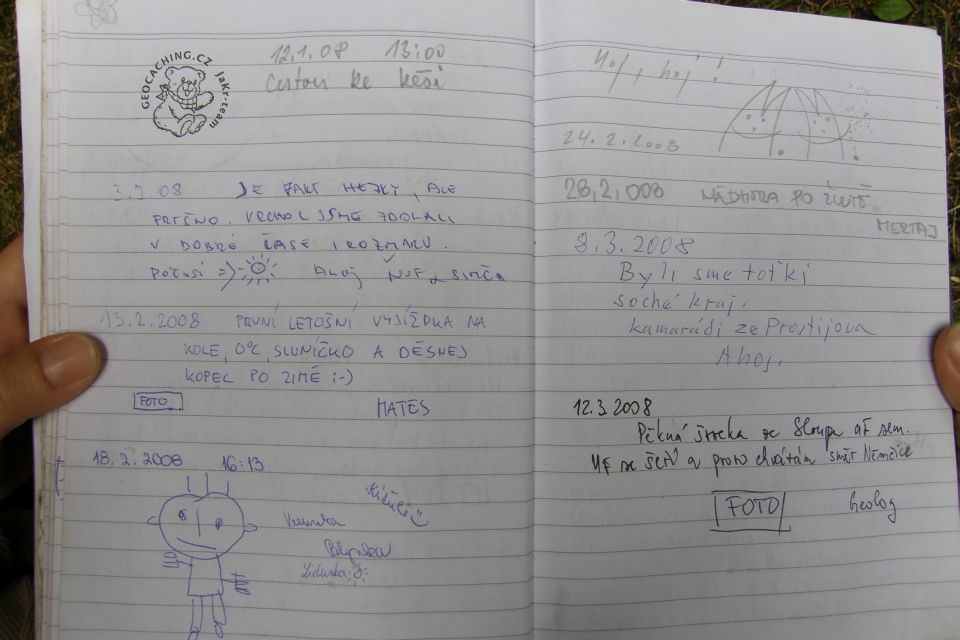 GEOCACHING.CZ JaKr-team
12.1.08 13:00
Cestou ke keši
3.2.08 JE FAKT HEZKY, ALE
FRČNO. VRCHOL JSME ZDOLALI
V DOBRÉ ČASE I ROZMARU.
POČASÍ => Ahoj
13.2.2008 PRVNÍ LETOŠNÍ VYJÍŽDKA NA
KOLE, 0°C, SLUNÍČKO A DĚSNEJ
KOPEC PO ZIMĚ :-)
FOTO MATES
18.2.2008 16:13
Verunka
Lidunka
Hoj, hoj!
24.2.2008
28.2.008 NÁDHERA PO
MERTAJ
9.3.2008
Byli sme toťki
soché kraj.
kamarádi ze Prostijova
Ahoj.
12.3.2008
Pěkná štreka ze Sloupu až sem.
Už se šeří a proto chvátám směr Němčice
FOTO Geolog